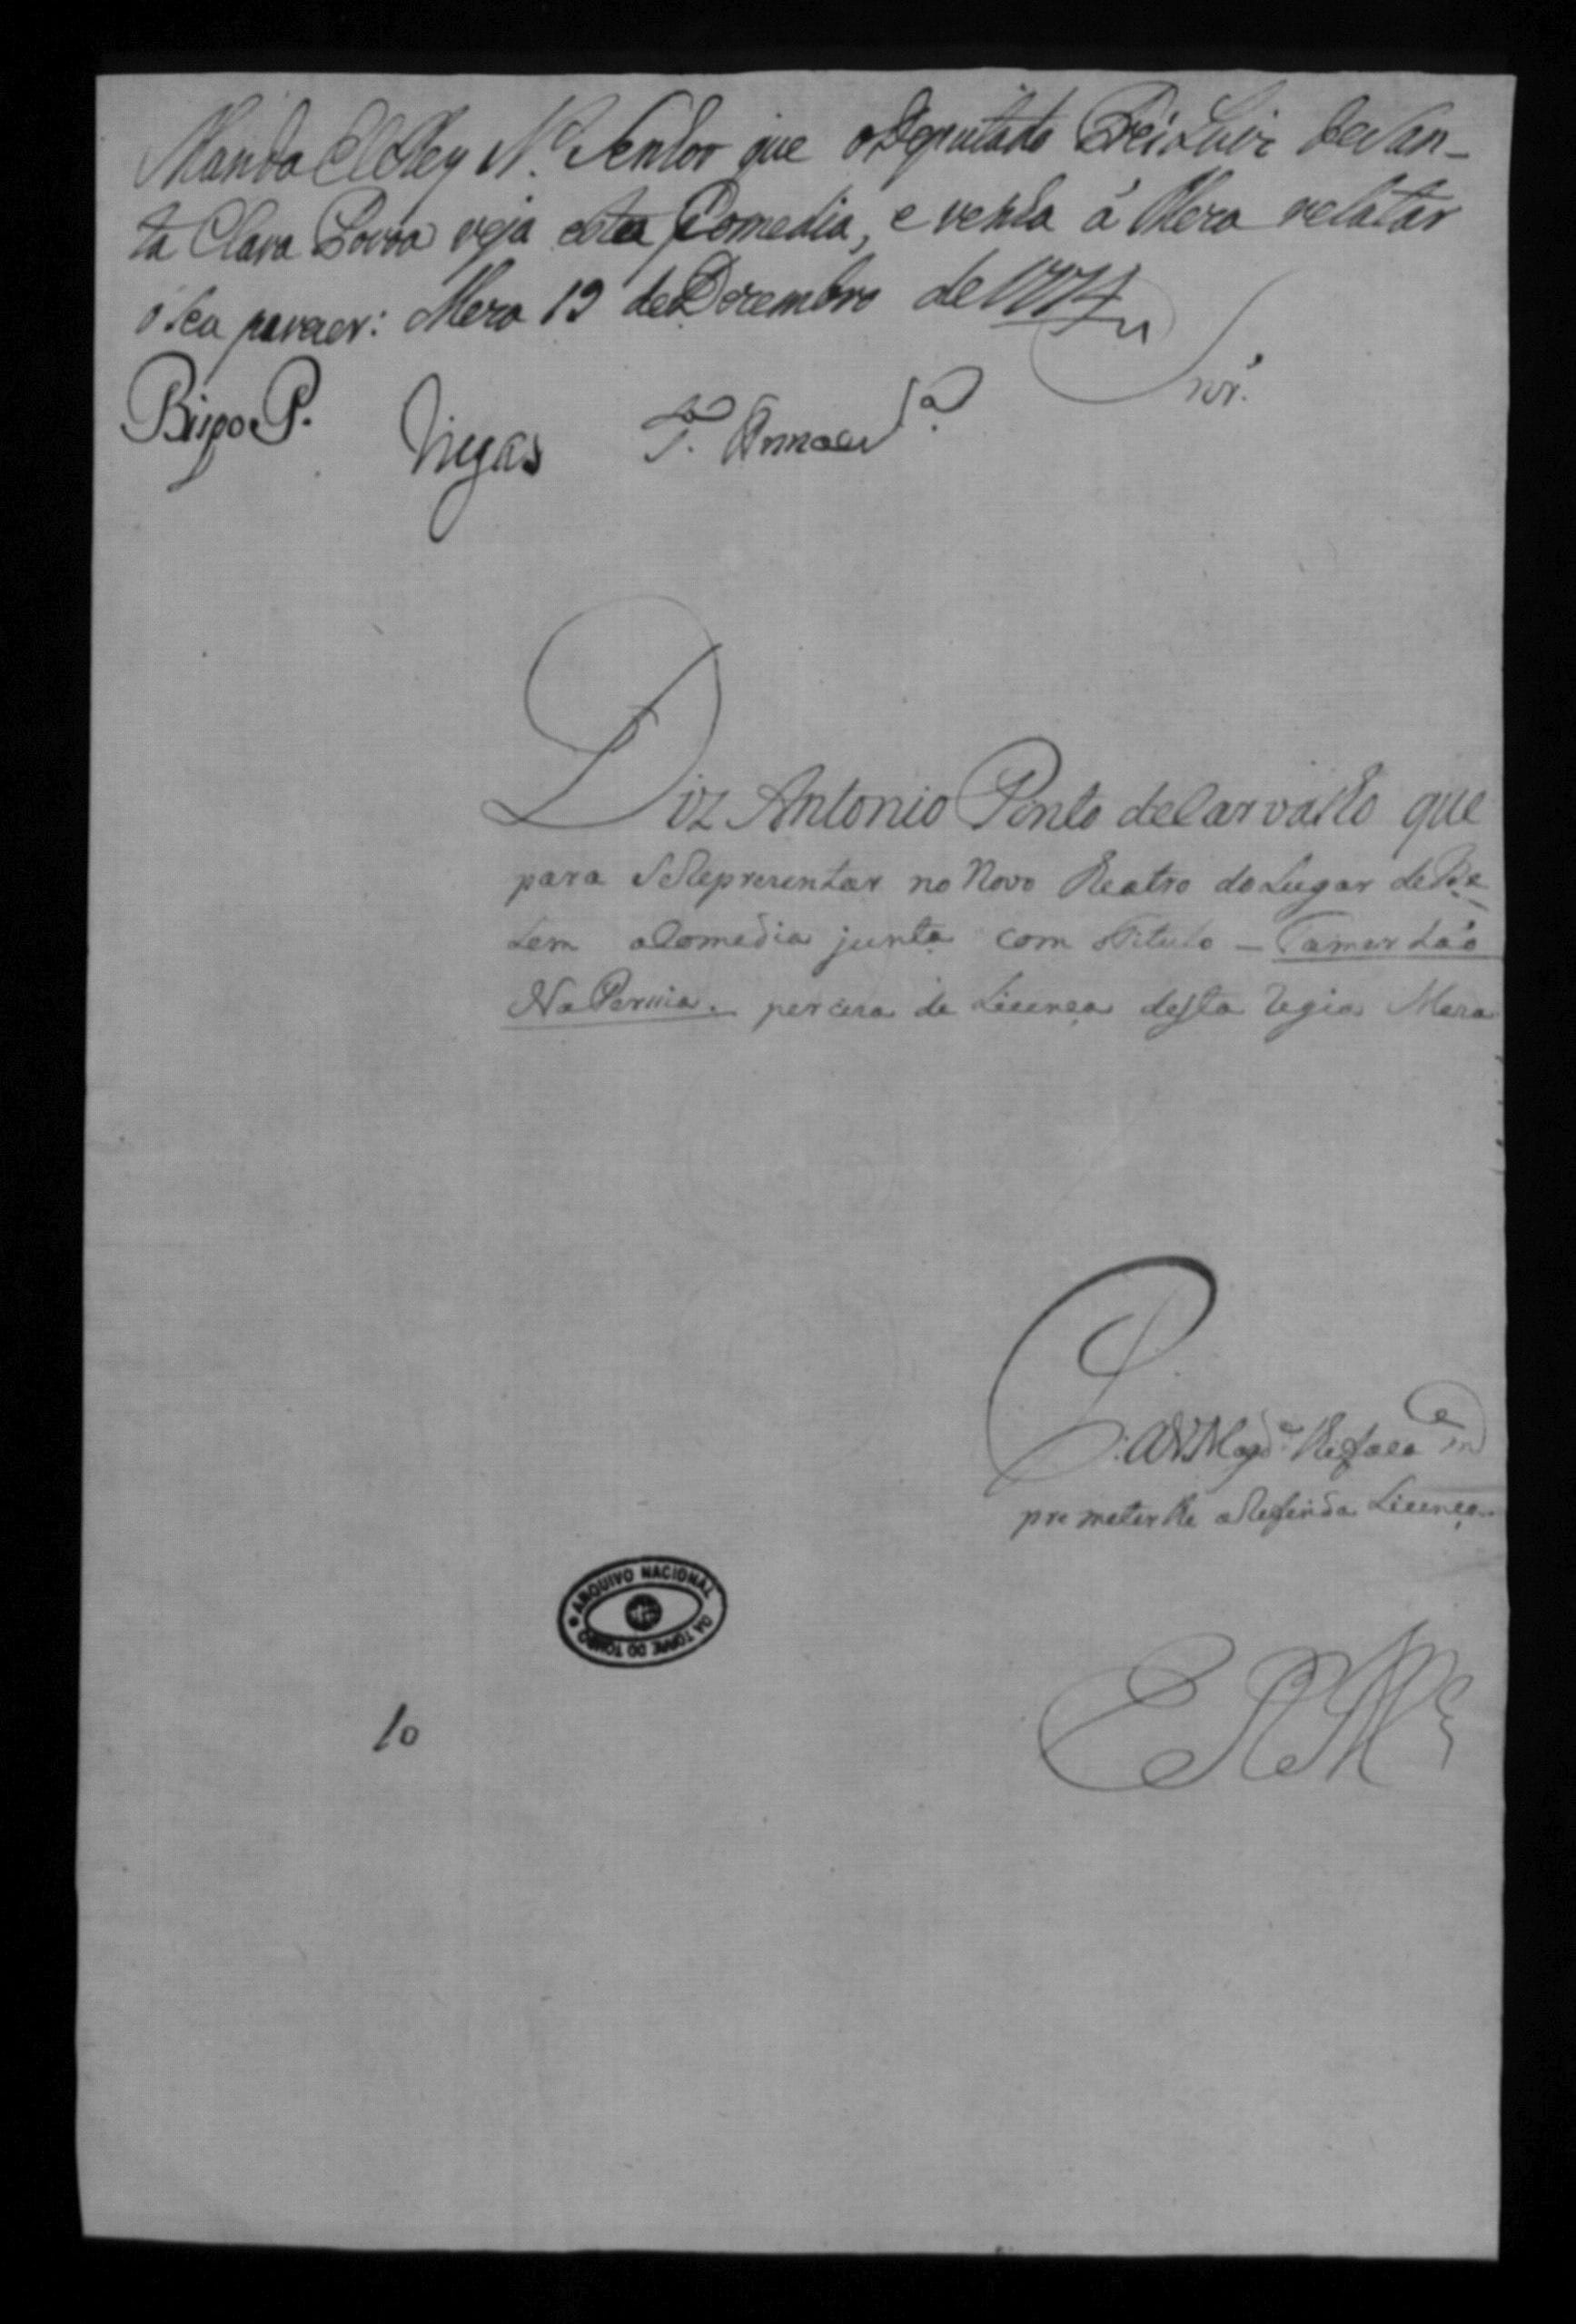 Manda ElRey N. Senhor que o Deputado Frei Luiz de San-
ta Clara Povoa veja esta Comedia, e venha á Meza relatar
o seu parecer: Meza 19 de Dezembro de 1774
Snr.
Bispo P. Viegas
Diz Antonio Pinto de Carvalho que
para se Reprezentar no Novo theatro do Lugar de Be-
Lem a Comedia junta com o titulo - Tamerlaõ
Na Persia. perciza de Licença desta Regia Meza
P. a V. Magde. lhe faça m
pre meter lhe a Referida Licença
E R Mce
ARQUIVO NACIONAL
DA TORRE DO TOMBO
10